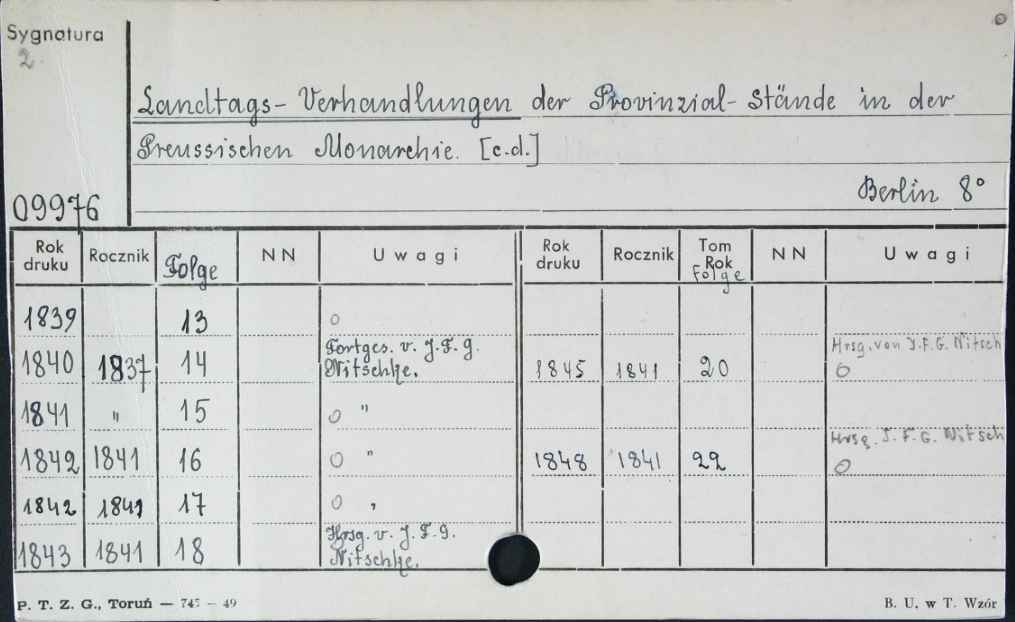 Sygnatura
2.
Landtags-Verhandlungen der Provinzial-Stände in der
Preussischen Monarchie. [c.d.]
Berlin 8°
09976
Rok druku Rocznik Folge NN Uwagi Rok druku Rocznik Tom Rok Folge NN Uwagi
1839 13 o
1840 1837 14 Fortges. v. J.F.G. Nitschke. 1845 1841 20 Hrsg. von J.F.G. Nitsch o
1841 " 15 o "
1842 1841 16 o " 1848 1841 22 Hrsg. J.F.G. Nitsch o
1842 1841 17 o "
1843 1841 18 Hrsg. v. J.F.G. Nitschke.
P. T. Z. G., Toruń — 745 — 49
B. U. w T. Wzór